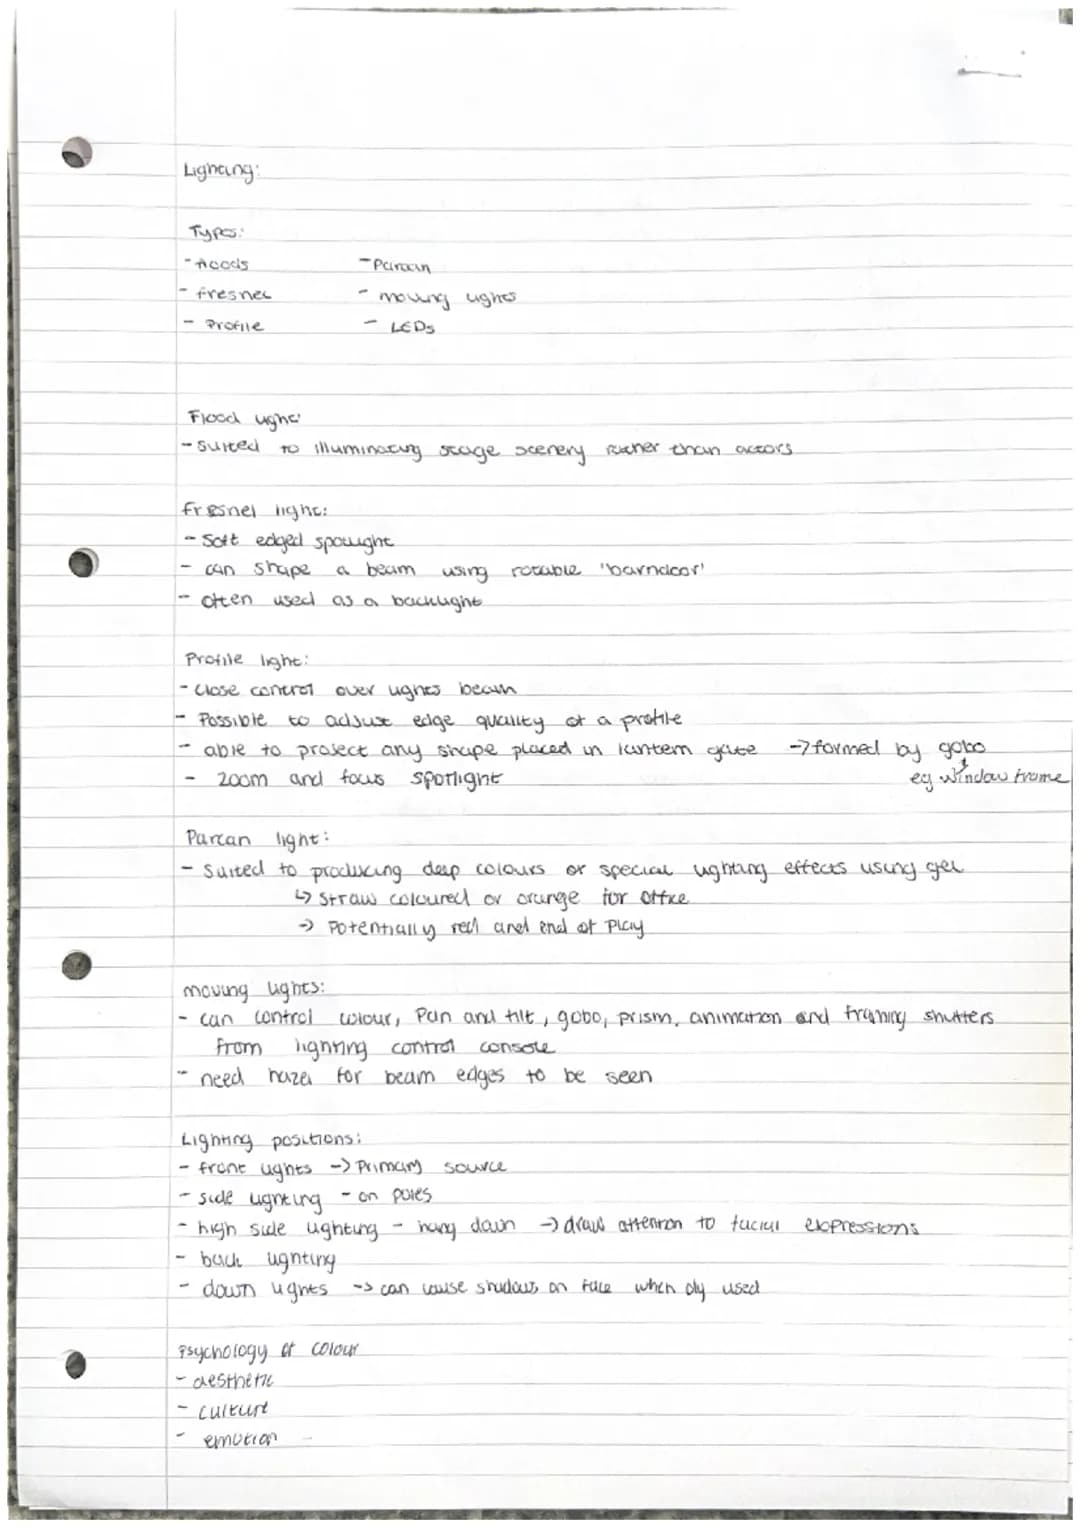 Lighting:
Types:
- floods - Parcan
- fresnel - moving lights
- Profile - LEDs
Flood light:
- suited to illuminating stage scenery rather than actors
fresnel light:
- Soft edged spotlight
- can shape a beam using rotable "barndoor'
- often used as a backlight
Profile light:
- Close control over lights beam
- Possible to adjust edge quality of a profile
- able to project any shape placed in lantern gate → formed by gobo
- zoom and focus spotlight eg window frame
Parcan light:
- Suited to producing deep colours or special lighting effects using gel
↳ Straw coloured or orange for office
→ Potentially red and end of Play
moving lights:
- can control colour, Pan and tilt, gobo, prism, animation and framing shutters
from lighting control console
- need hazer for beam edges to be seen
Lighting positions:
- front lights → Primary source
- side lighting - on poles
- high side lighting - hang down → draw attention to facial expressions
- back lighting
- down lights → can cause shadows on face when oly used
Psychology of colour
- aesthetic
- culture
- emotion